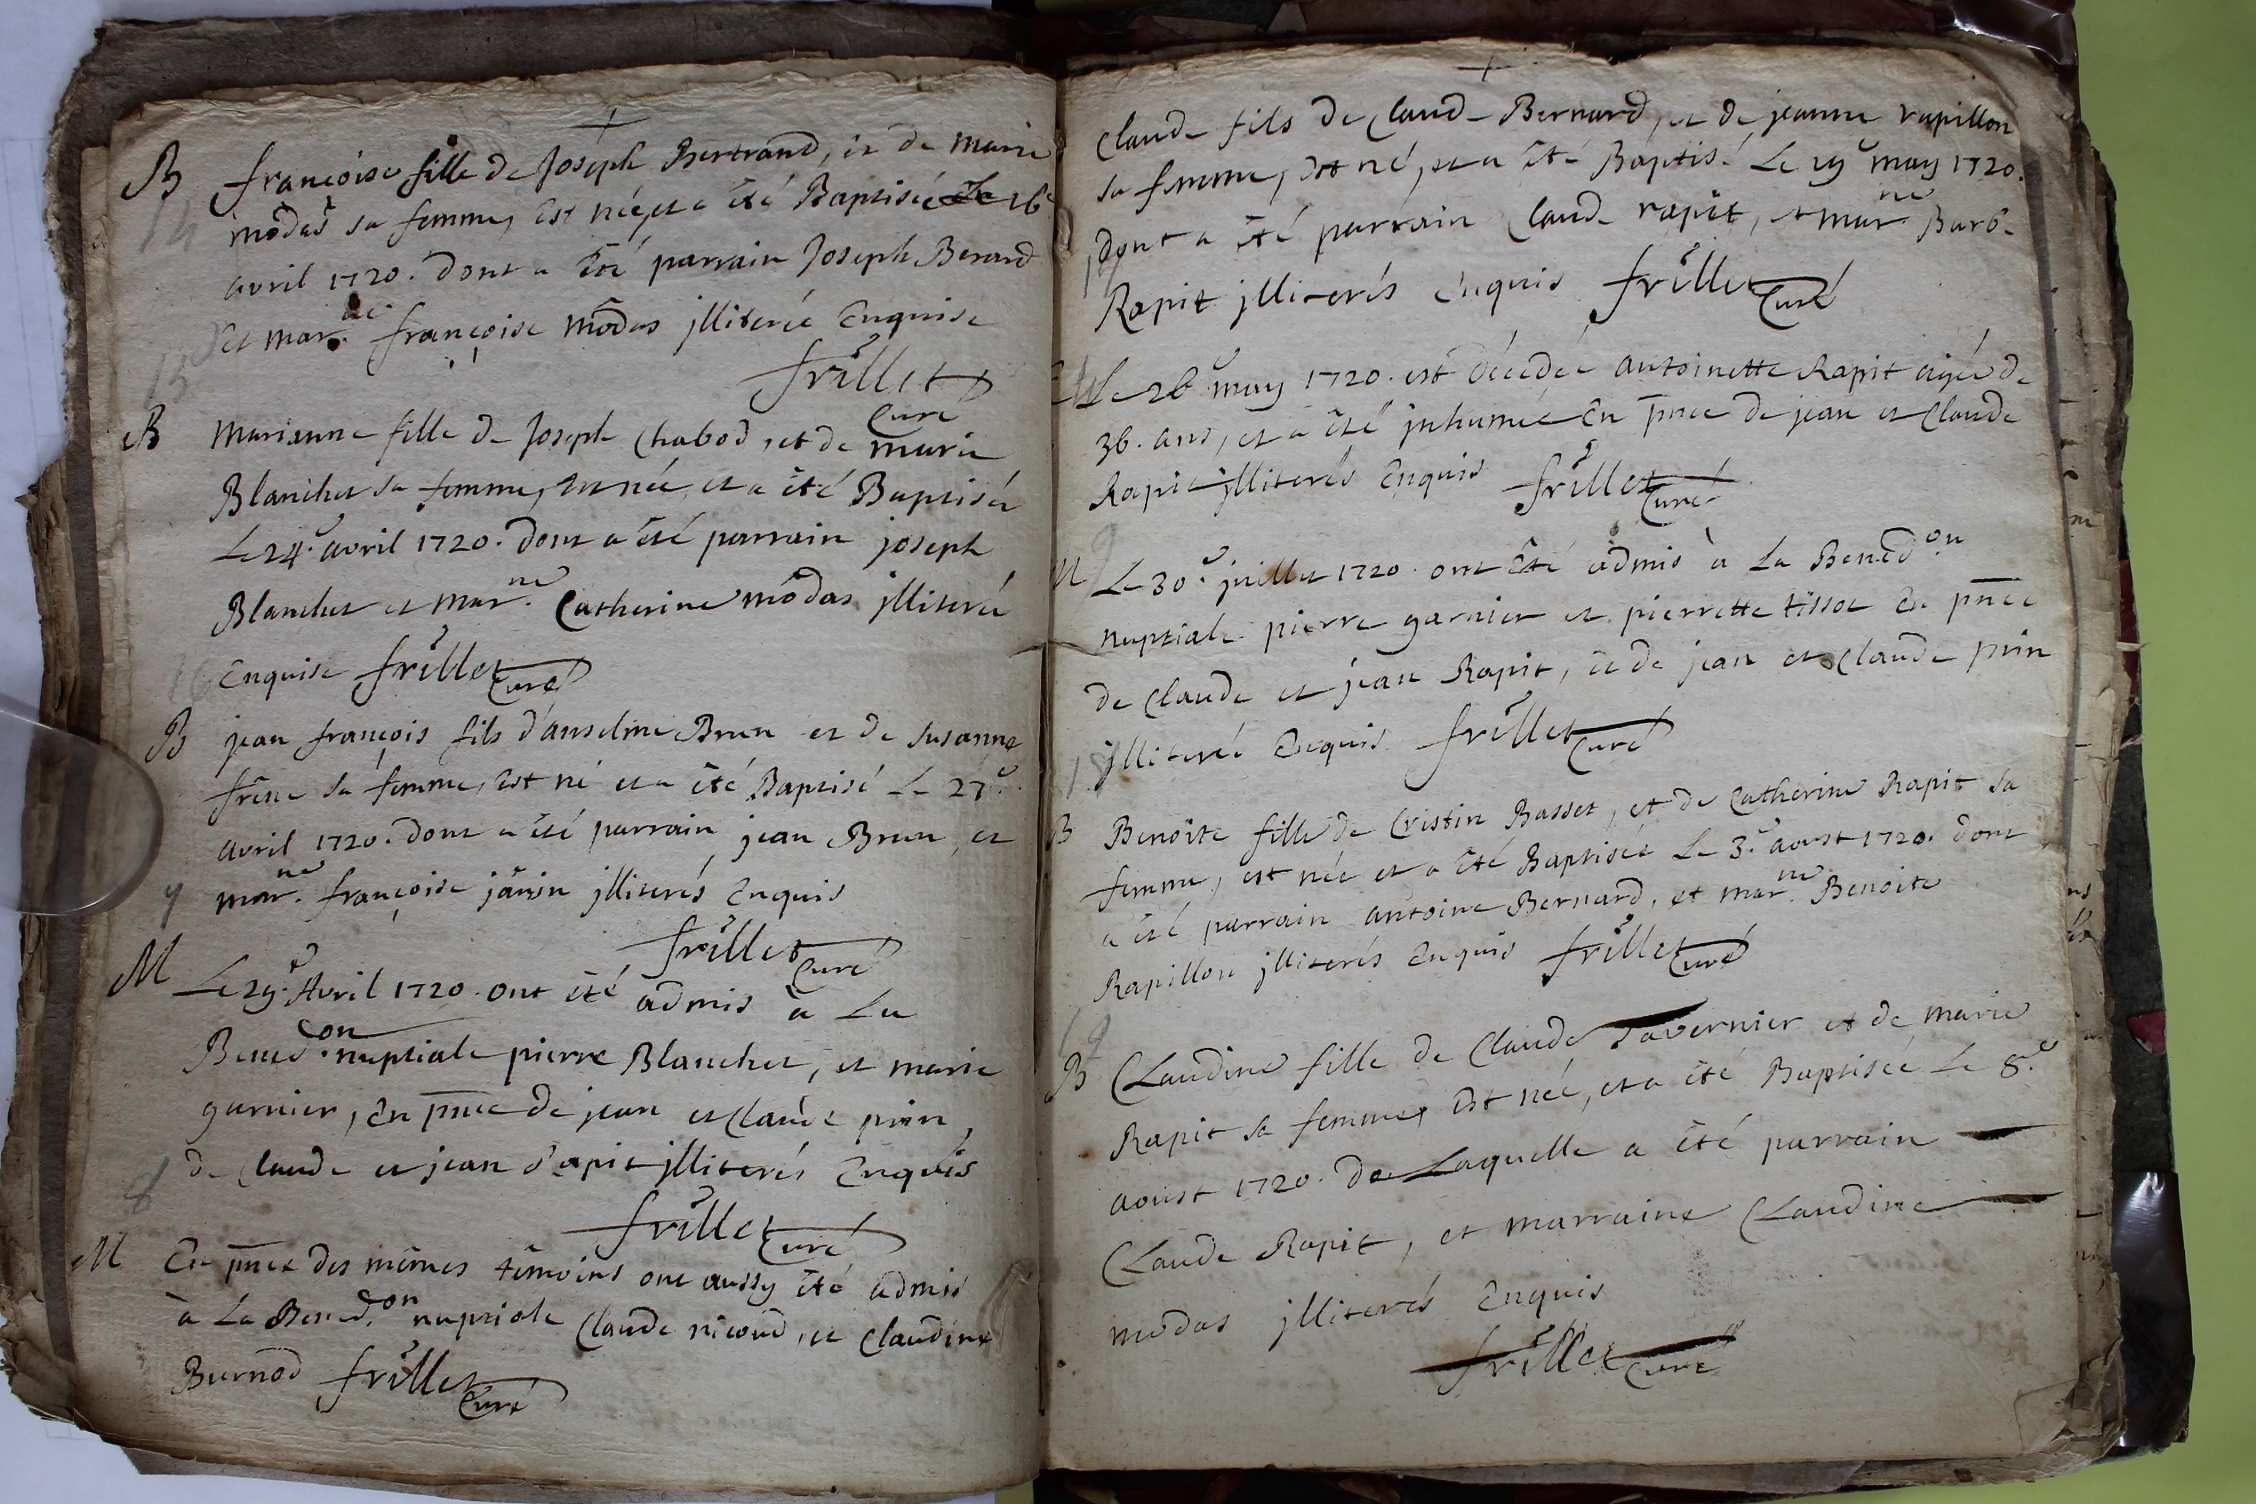 B françoise fille de Joseph Bertrand, et de marie
modas sa femme, est née, et a été Baptisée Le 16e
avril 1720. dont a été parrain Joseph Berard
et mar.ne françoise modas jlliterée Enquise
frillet
Curé
B Marianne fille de Joseph Chabod, et de marie
Blanchet sa femme, est née, et a été Baptisée
Le 24.e avril 1720. dont a été parrain joseph
Blanchet et mar.ne Catherine modas jlliterée
Enquise frillet Curé
B jean françois fils d'anselme Brun et de Susanne
frêne sa femme, est né et a été Baptisé Le 27.e
avril 1720. dont a été parrain jean Brun, et
mar.ne françoise janin jlliterés Enquis
frillet Curé
M Le 29.e Avril 1720. ont été admis à La
Bened.on nuptiale pierre Blanchet, et marie
garnier, En pnce de jean et Claude prin,
de Claude et jean rapit jlliterés Enquis
frillet Curé
M En pnce des mêmes têmoins ont aussy été admis
à La Bened.on nuptiale Claude nicoud, et Claudine
Burnod frillet Curé
Claude fils de Claude Bernard, et de jeanne rapillon
sa femme, est né, et a été Baptisé Le 19e may 1720.
dont a été parrain Claude rapit, et mar.ne Barbe
Rapit jlliterés Enquis frillet Curé
Le 26e may 1720. est décédée antoinette Rapit agée de
36. ans, et a été jnhumée En pnce de jean et Claude
Rapit jlliterés Enquis frillet Curé
M Le 30.e juillet 1720. ont été admis à La Bened.on
nuptiale pierre garnier et pierrette tissot En pnce
de Claude et jean Rapit, et de jean et Claude prin
jlliterés Enquis frillet Curé
B Benoite fille de Cristin Basset, et de Catherine Rapit sa
femme, est née et a été Baptisée Le 3.e aoust 1720. dont
a été parrain antoine Bernard, et mar.ne Benoite
Rapillon jlliterés Enquis frillet Curé
B CLaudine fille de Claude Tavernier et de marie
Rapit sa femme, est née, et a été Baptisée Le 8.e
aoust 1720. de Laquelle a été parrain
CLaude Rapit, et marraine CLaudine
modas jlliterés Enquis
frillet Curé